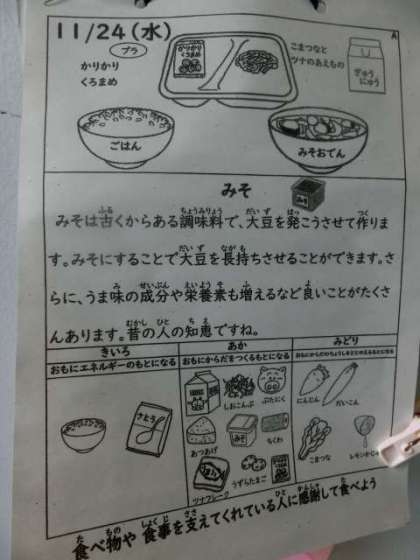 11/24(水)
A
プラ
かりかり
くろまめ
かりかり
くろまめ
こまつなと
ツナのあえもの
ぎゅう
にゅう
ごはん
みそおでん
みそ
みそは古くからある調味料で、大豆を発こうさせて作りま
す。みそにすることで大豆を長持ちさせることができます。さ
らに、うま味の成分や栄養素も増えるなど良いことがたくさ
んあります。昔の人の知恵ですね。
きいろ
おもにエネルギーのもとになる
あか
おもにからだをつくるもとになる
みどり
おもにからだのちょうしをととのえるもとになる
さとう
しおこんぶ
ぶたにく
あつあげ
みそ
ちくわ
ツナフレーク
うずらたまご
にんじん
だいこん
こまつな
レモンかじゅう
食べ物や食事を支えてくれている人に感謝して食べよう